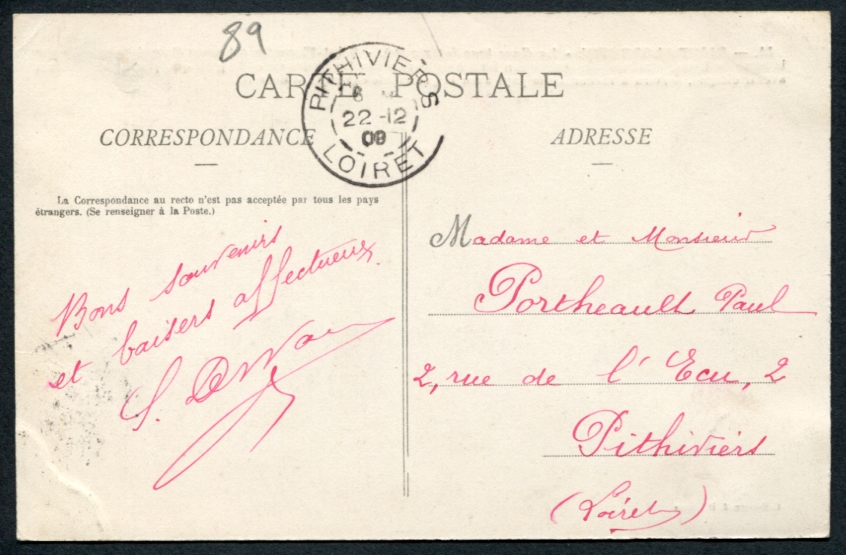 89
CARTE POSTALE
PITHIVIERS
22-12
09
LOIRET
CORRESPONDANCE
ADRESSE
La Correspondance au recto n'est pas acceptée par tous les pays
étrangers. (Se renseigner à la Poste.)
Bons souvenirs
et baisers affectueux.
Madame et Monsieur
Portheault Paul
2, rue de l'Ecu, 2
Pithiviers
(Loiret)